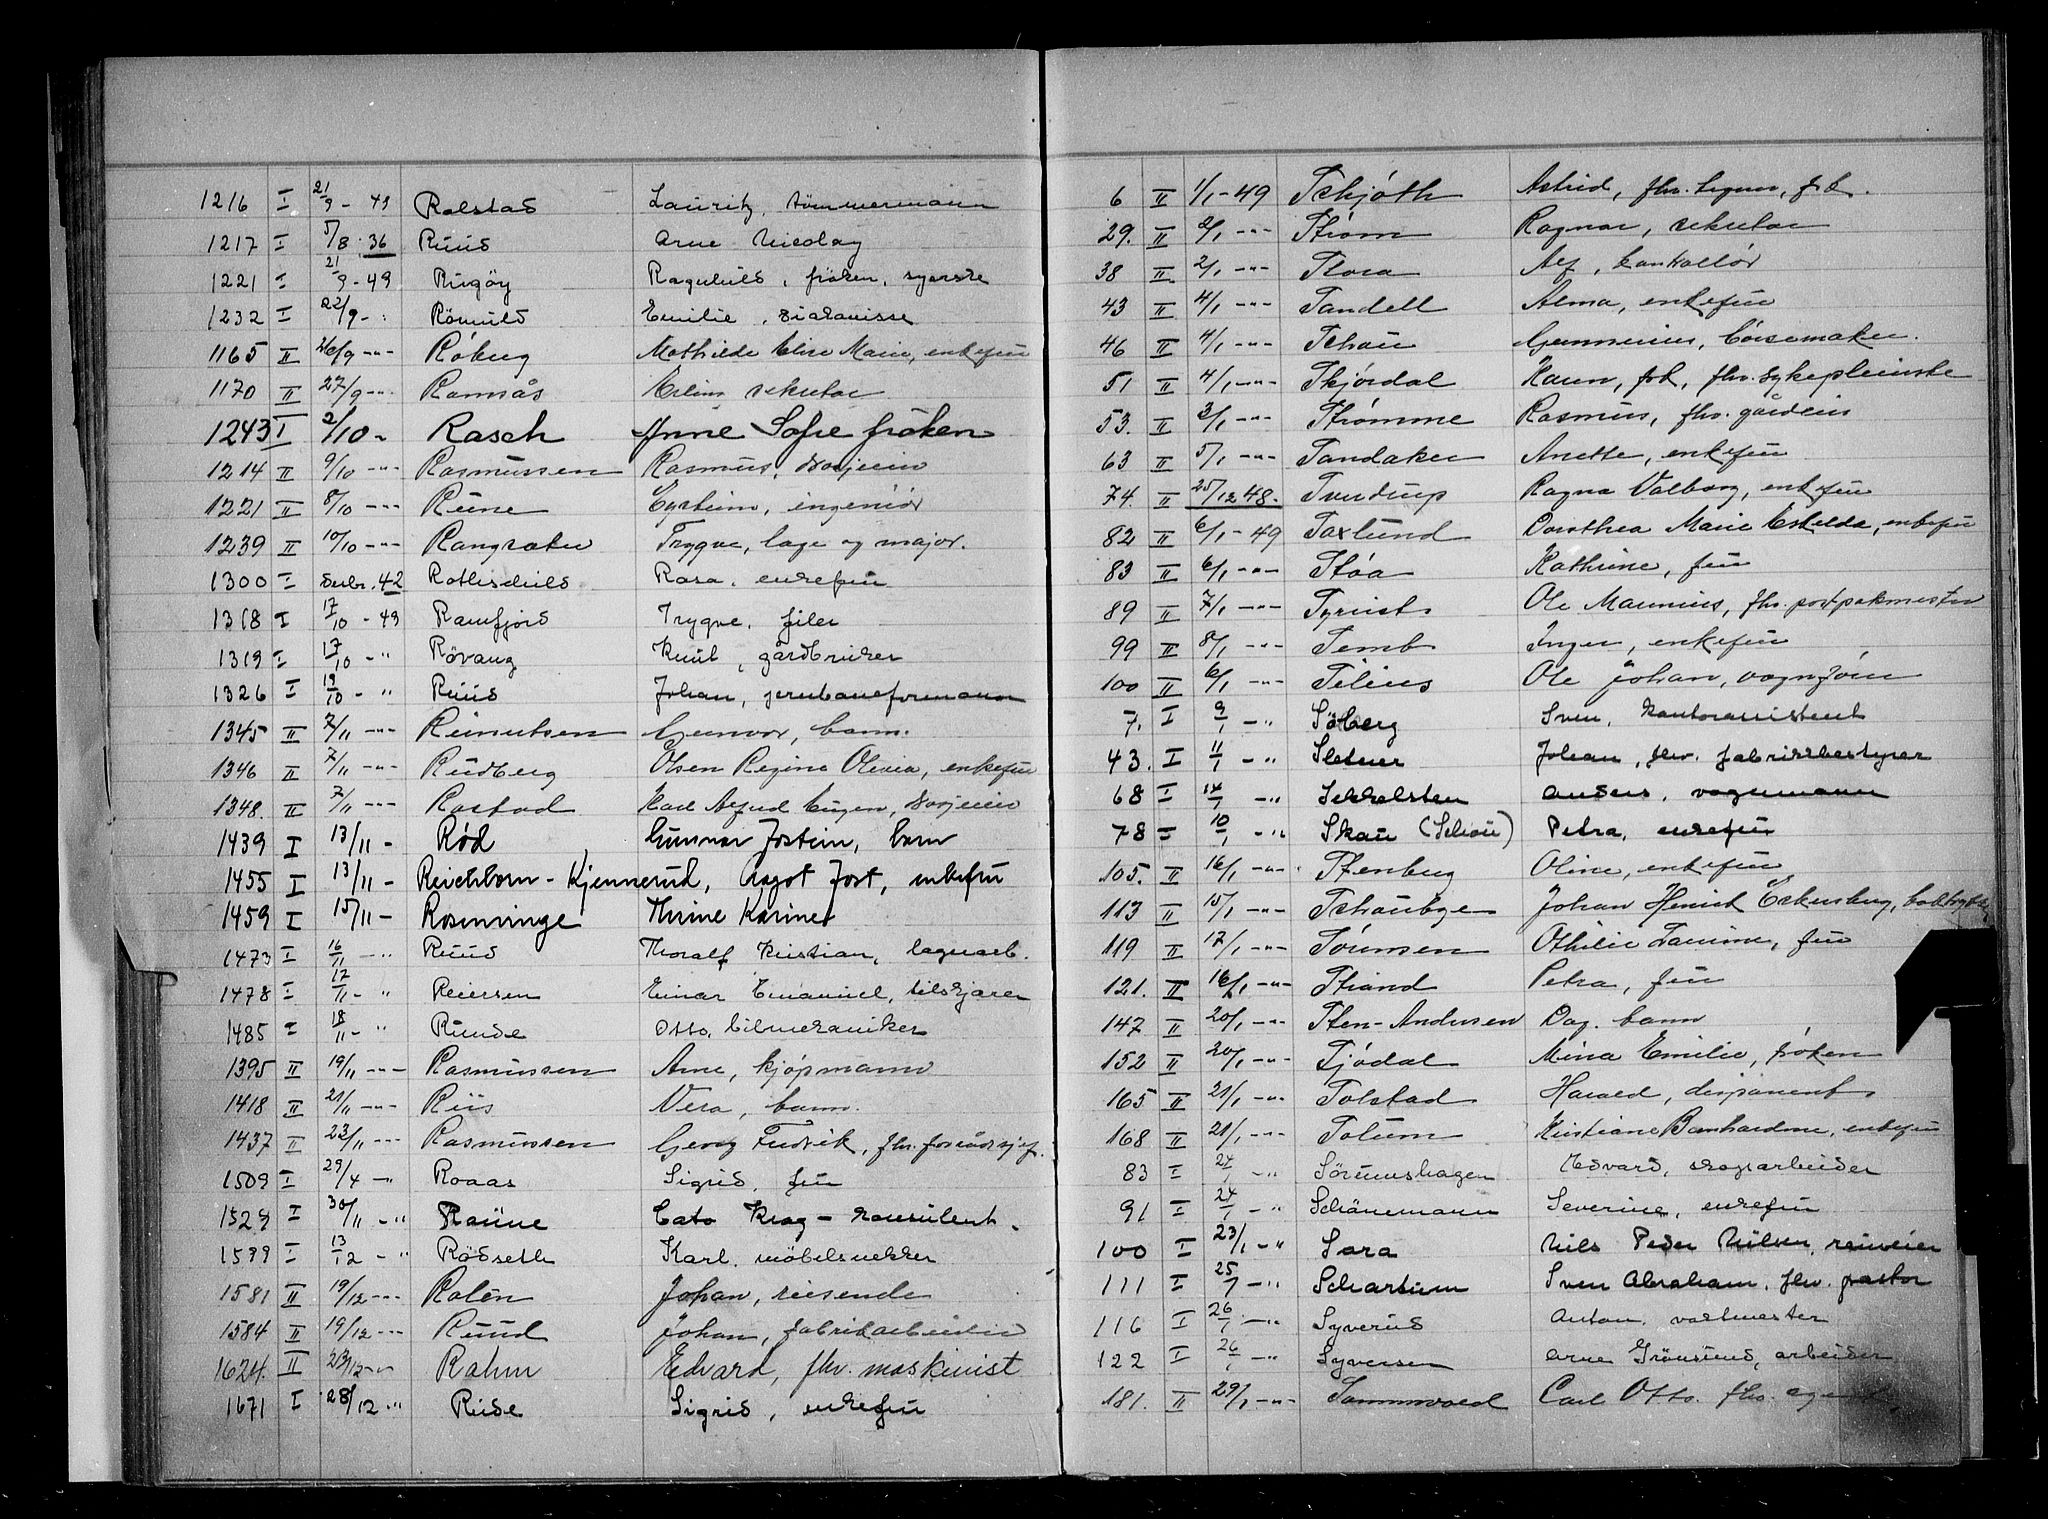 1216 I 21/9 - 49 Rolstad Lauritz, tömmermann
1217 I 5/8 - 36 Ruud Arne Nicolay
1221 I 21/9 - 49 Rugöy Ragnhild, fröken, syerske
1232 I 22/9 - " Römuld Emilie, diakonisse
1165 II 26/9 -"- Röberg Mathilde Elise Marie, enkefru
1170 II 27/9 -"- Ramsås Erling sekretær
1243 I 2/10 - Rasch Anne Sofie fröken
1214 II 9/10 -"- Rasmussen Rasmus,
1221 II 8/10 -"- Rune Eystein, ingeniör
1239 II 10/10 -"- Rangsæter Trygve, lege og major.
1300 I desbr. 42 Rothschild Rosa, enkefru
1318 I 17/10 - 49 Ramfjord Trygve, filer
1319 I 17/10 - " Rövang Knut, gårdbruker
1326 I 19/10 - " Ruud Johan, jernbaneformann
1345 II 7/11 -"- Reinertsen Gunvor, barn.
1346 II 7/11 -"- Rudberg Olsen Regine Olivia, enkefru
1348. II 7/11 -"- Rostad Karl Alfred Eugen,
1439 I 13/11 - Rød Gunnar Jostein, barn
1455 I 13/11 - Reichborn-Kjennerud, Aagot Jost, enkefru
1459 I 15/11 - Rosenvinge Thrine Karine
1473 I 16/11 - " Ruud Thoralf Kristian, lagerarb.
1478 I 17/11 - " Reiersen Einar Emanuel, tilskjærer
1485 I 18/11 - " Runde Otto, bilmekaniker
1395 II 19/11 -"- Rasmussen Arne, kjøpmann
1418 II 21/11 -"- Riis Vera, barn.
1437 II 23/11 -"- Rasmussen Georg Fredrik, fhv. forrådssjef.
1509 I 29/4 -" Roaas Sigrid, fru
1527 I 30/11 - " Raüne Cato Krag - konsulent.
1539 I 13/12 - " Rödseth Karl, möbelsnekker
1581 II 19/12 -"- Rolén Johan, reisende
1584 II 19/12 -"- Ruud Johan, fabrikarbeider
1624. II 23/12 -"- Rahm Edvard, fhv. maskinist
1671 I 28/12 " Rude Sigrid, enkefru
6 II 1/1 - 49 Schjøth Astrid, fhv. frk.
29. II 2/1 -"- Strøm Ragnar, sekretær
38 II 2/1 -"- Stora Alf, kontrollør
43 II 4/1 -"- Sandell Alma, enkefru
46 II 4/1 -"- Schou Gunnerius, börsemaker.
51 II 4/1 -"- Skjørdal Karen, frk, fhv. sykepleierske
53. II 3/1 -"- Strømme Rasmus, fhv. gårdeier
63 II 5/1 -"- Sandaker Anette, enkefru
74. II 25/12 48. Sverdrup Ragna Valborg, enkefru
82 II 6/1 - 49 Saxlund Dorothea Marie Eskilda, enkefru
83 II 6/1 -"- Støa Kathrine, fru
89 II 7/1 -"- Syrist Ole Maurius, fhv. postpakmester
99 II 8/1 -"- Semb Inger, enkefru
100 II 6/1 -"- Silius Ole Johan, vognfører
7. I 9/1 - " Söberg Sven, kontorassistent
43. I 11/1 - " Sletner Johan, fhv. fabrikkbestyrer
68 I 14/1 - " Sekkelsten Anders, vognmann
78 I 10/1 - " Skau (Schou) Petra, enkefru
105. II 16/1 -"- Stenberg Oline, enkefru
113 II 15/1 -"- Schaubye Johan Henrik Eckersberg,
119 II 17/1 -"- Sørensen Othilie Lauine, fru
121. II 16/1 -"- Strand Petra, fru
147 II 20/1 -"- Sten-Andersen Dag, barn
152 II 20/1 -"- Sjödal Mina Emilie, frøken
165 II 21/1 -"- Solstad Harald, disponent
168 II 21/1 -"- Solum Kristiane Bernhardine, enkefru
83 I 24/1 " Sörumshagen Edvard, skogsarbeider
91 I 24/1 - " Schönemann Severine, enkefru
100 I 23/1 - " Sara Nils Peder Nilsen, reineier
111 I 25/1 - " Schartum Sven Abraham, fhv. pastor
116 I 26/1 - " Syverud Anton, vaktmester
122 I 26/1 - " Syversen Arne Grönsund, arbeider
181. II 29/1 -"- Sommervold Carl Otto. fhv. agent